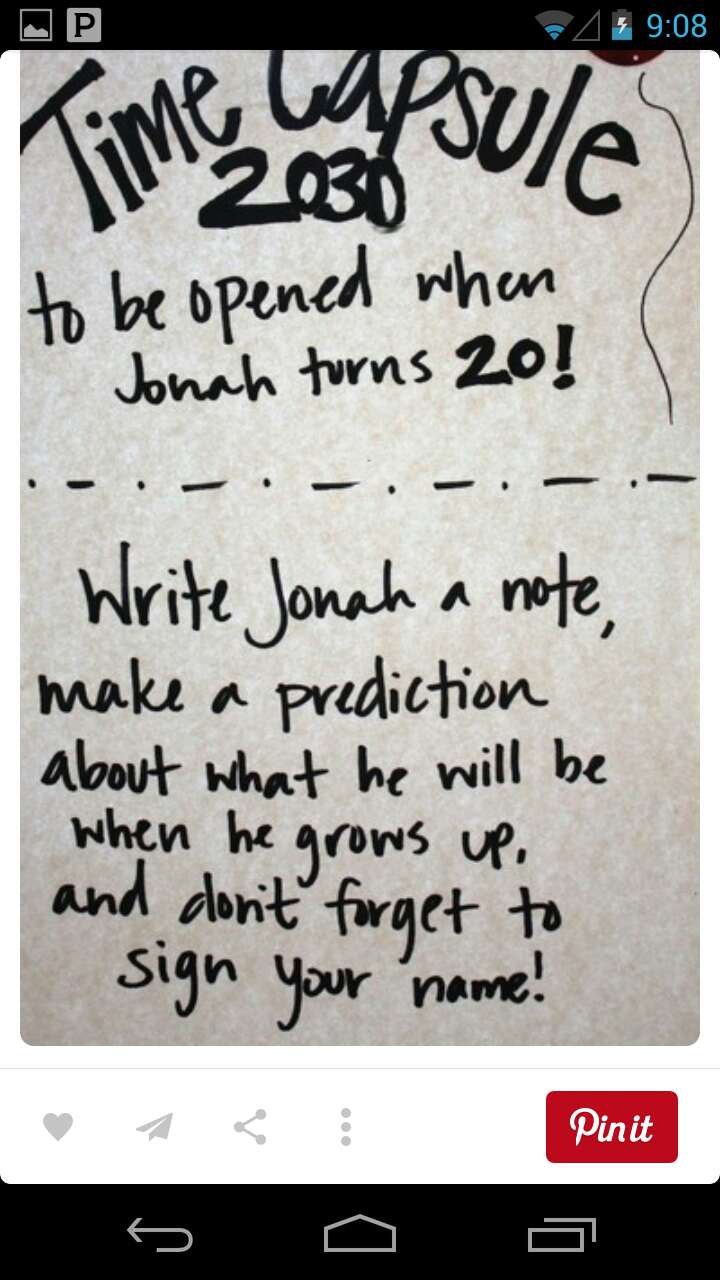 9:08
Time Capsule
2030
to be opened when
Jonah turns 20!
Write Jonah a note,
make a prediction
about what he will be
when he grows up,
and don't forget to
sign your name!
Pin it